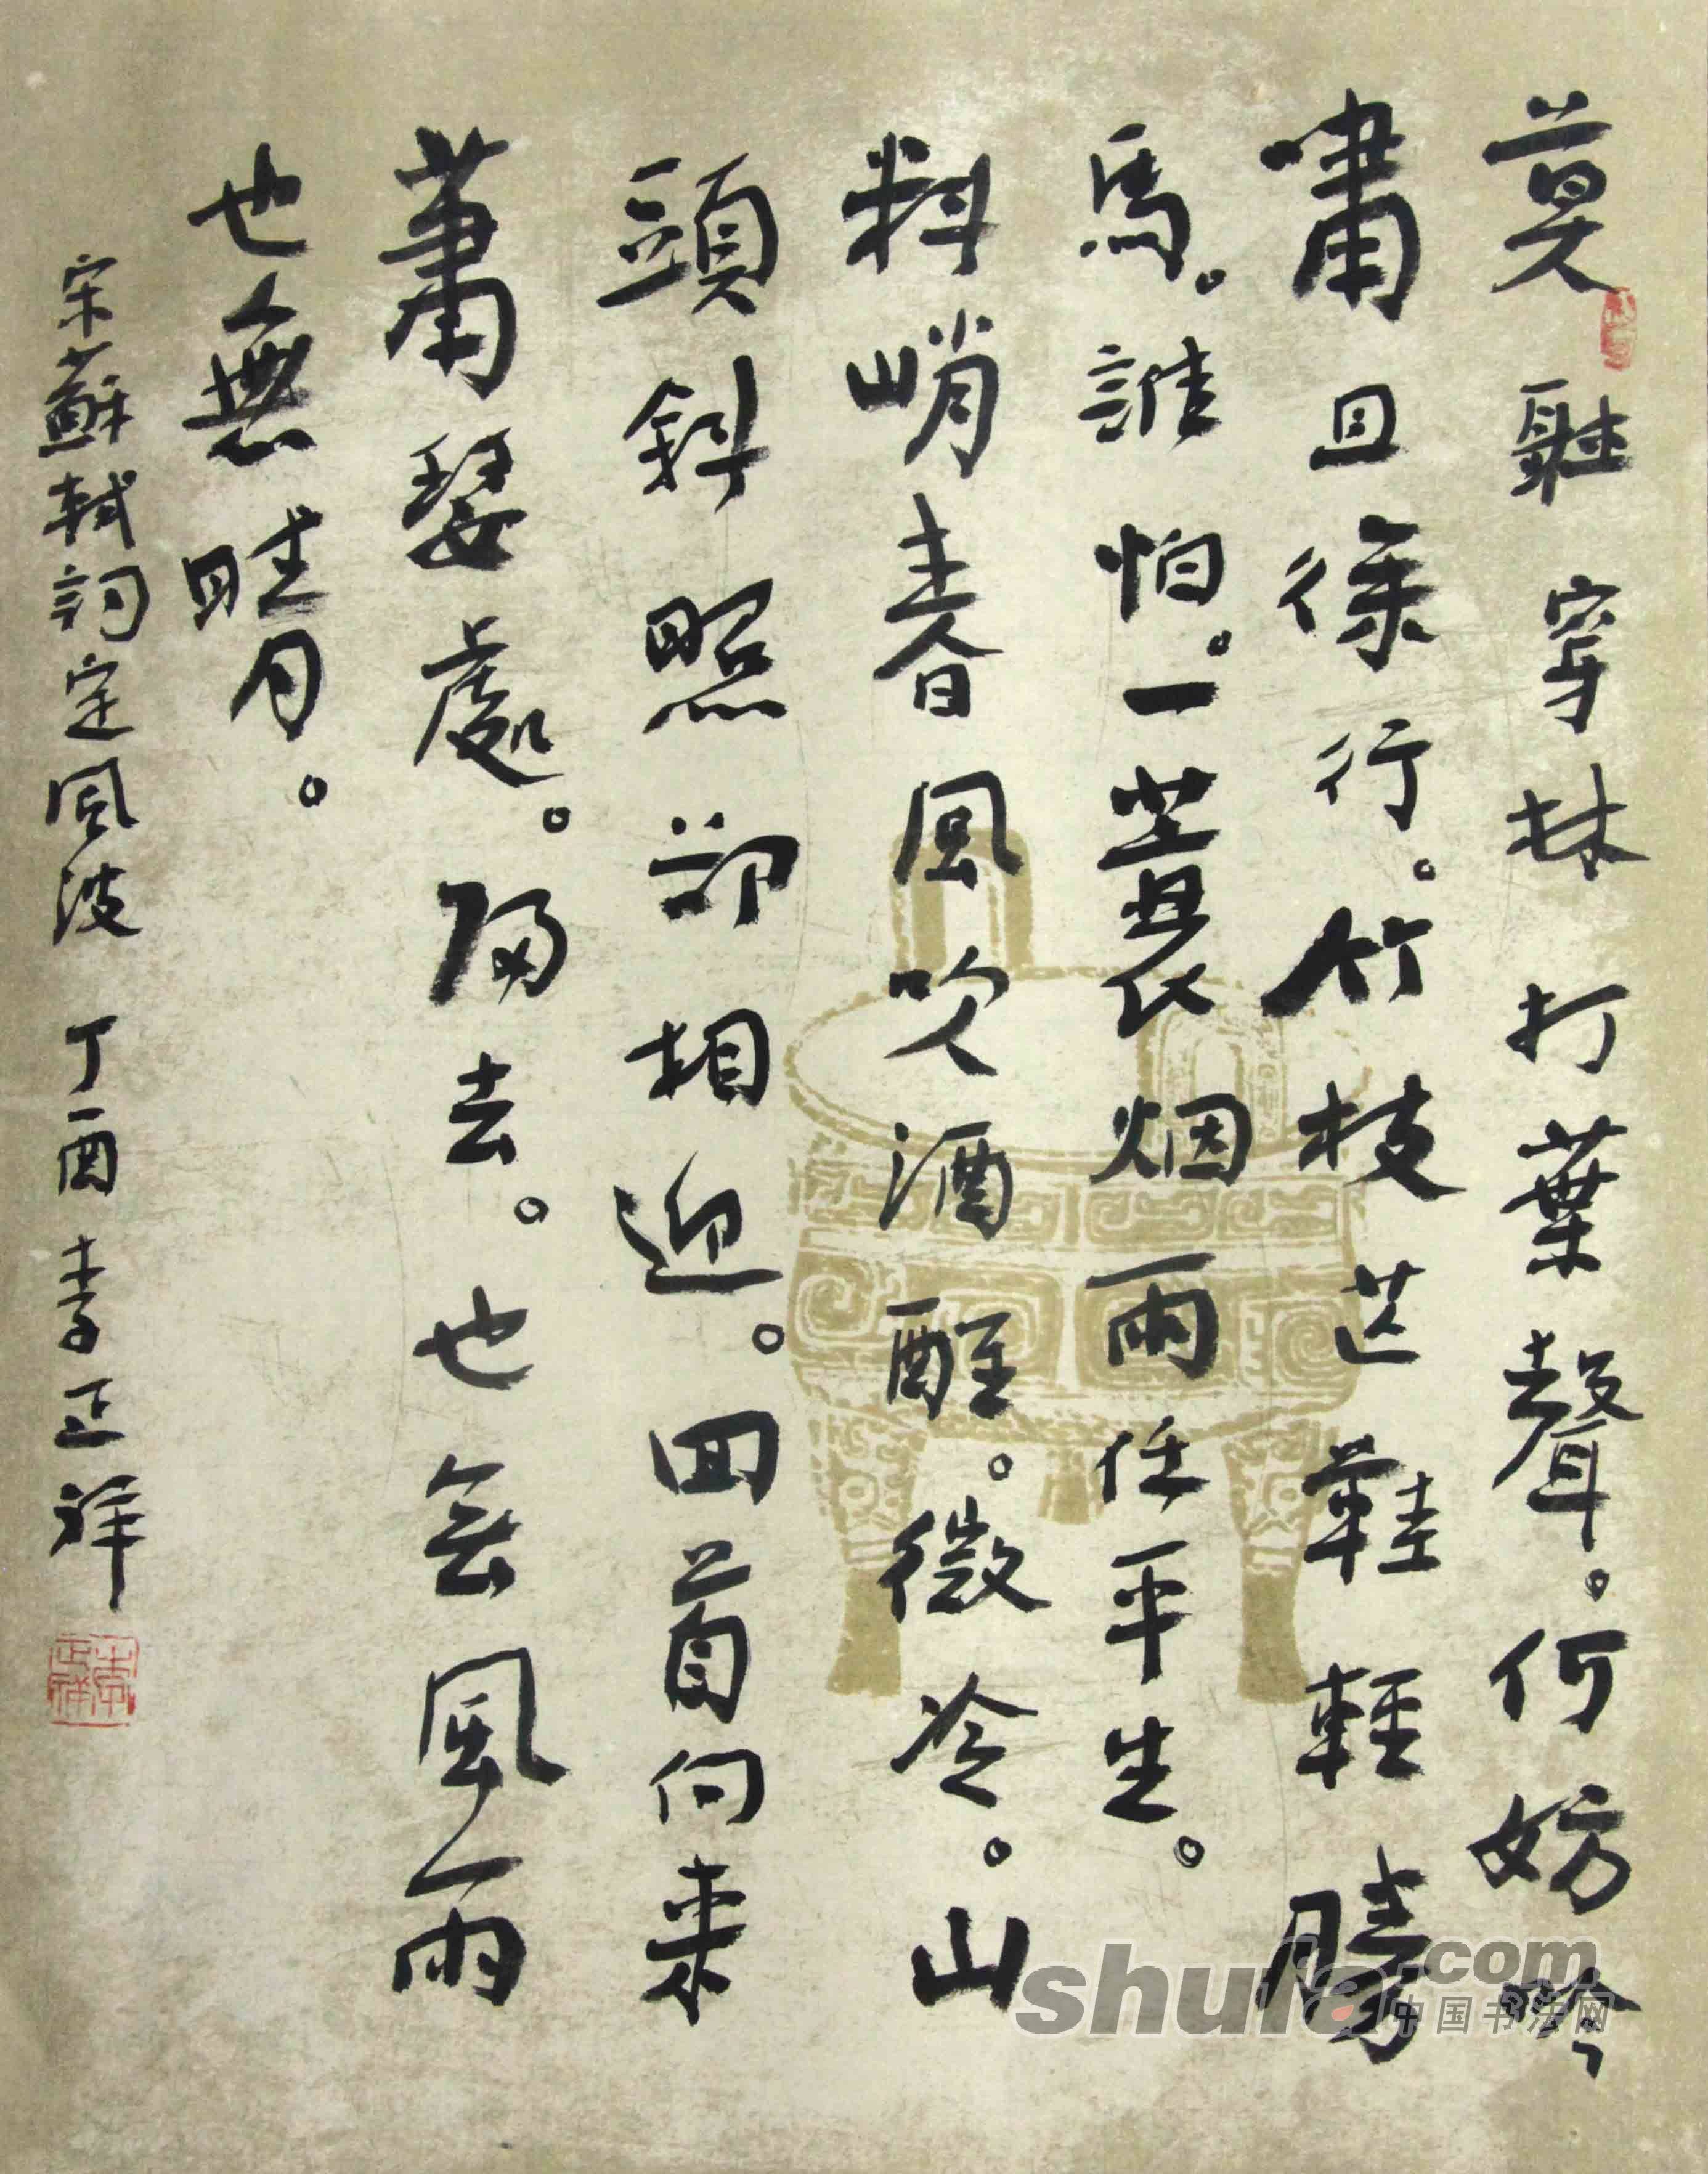 莫聽穿林打葉聲。何妨吟
嘯且徐行。竹枝芒鞋輕勝
馬。誰怕。一蓑烟雨任平生。
料峭春風吹酒醒。微冷。山
頭斜照却相迎。回首向来
蕭瑟處。歸去。也无風雨
也無晴。
宋蘇軾詞定風波 丁酉 李正祥
李正祥
shufa.com
中国书法网